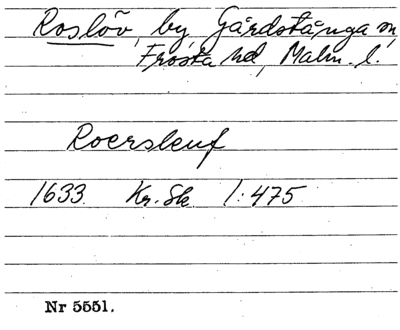 Roslöv, by, Gårdstånga sn,
Frosta hd, Malm. l.
Roersleuf
1633. Kr. Sk 1:475
Nr 5551.